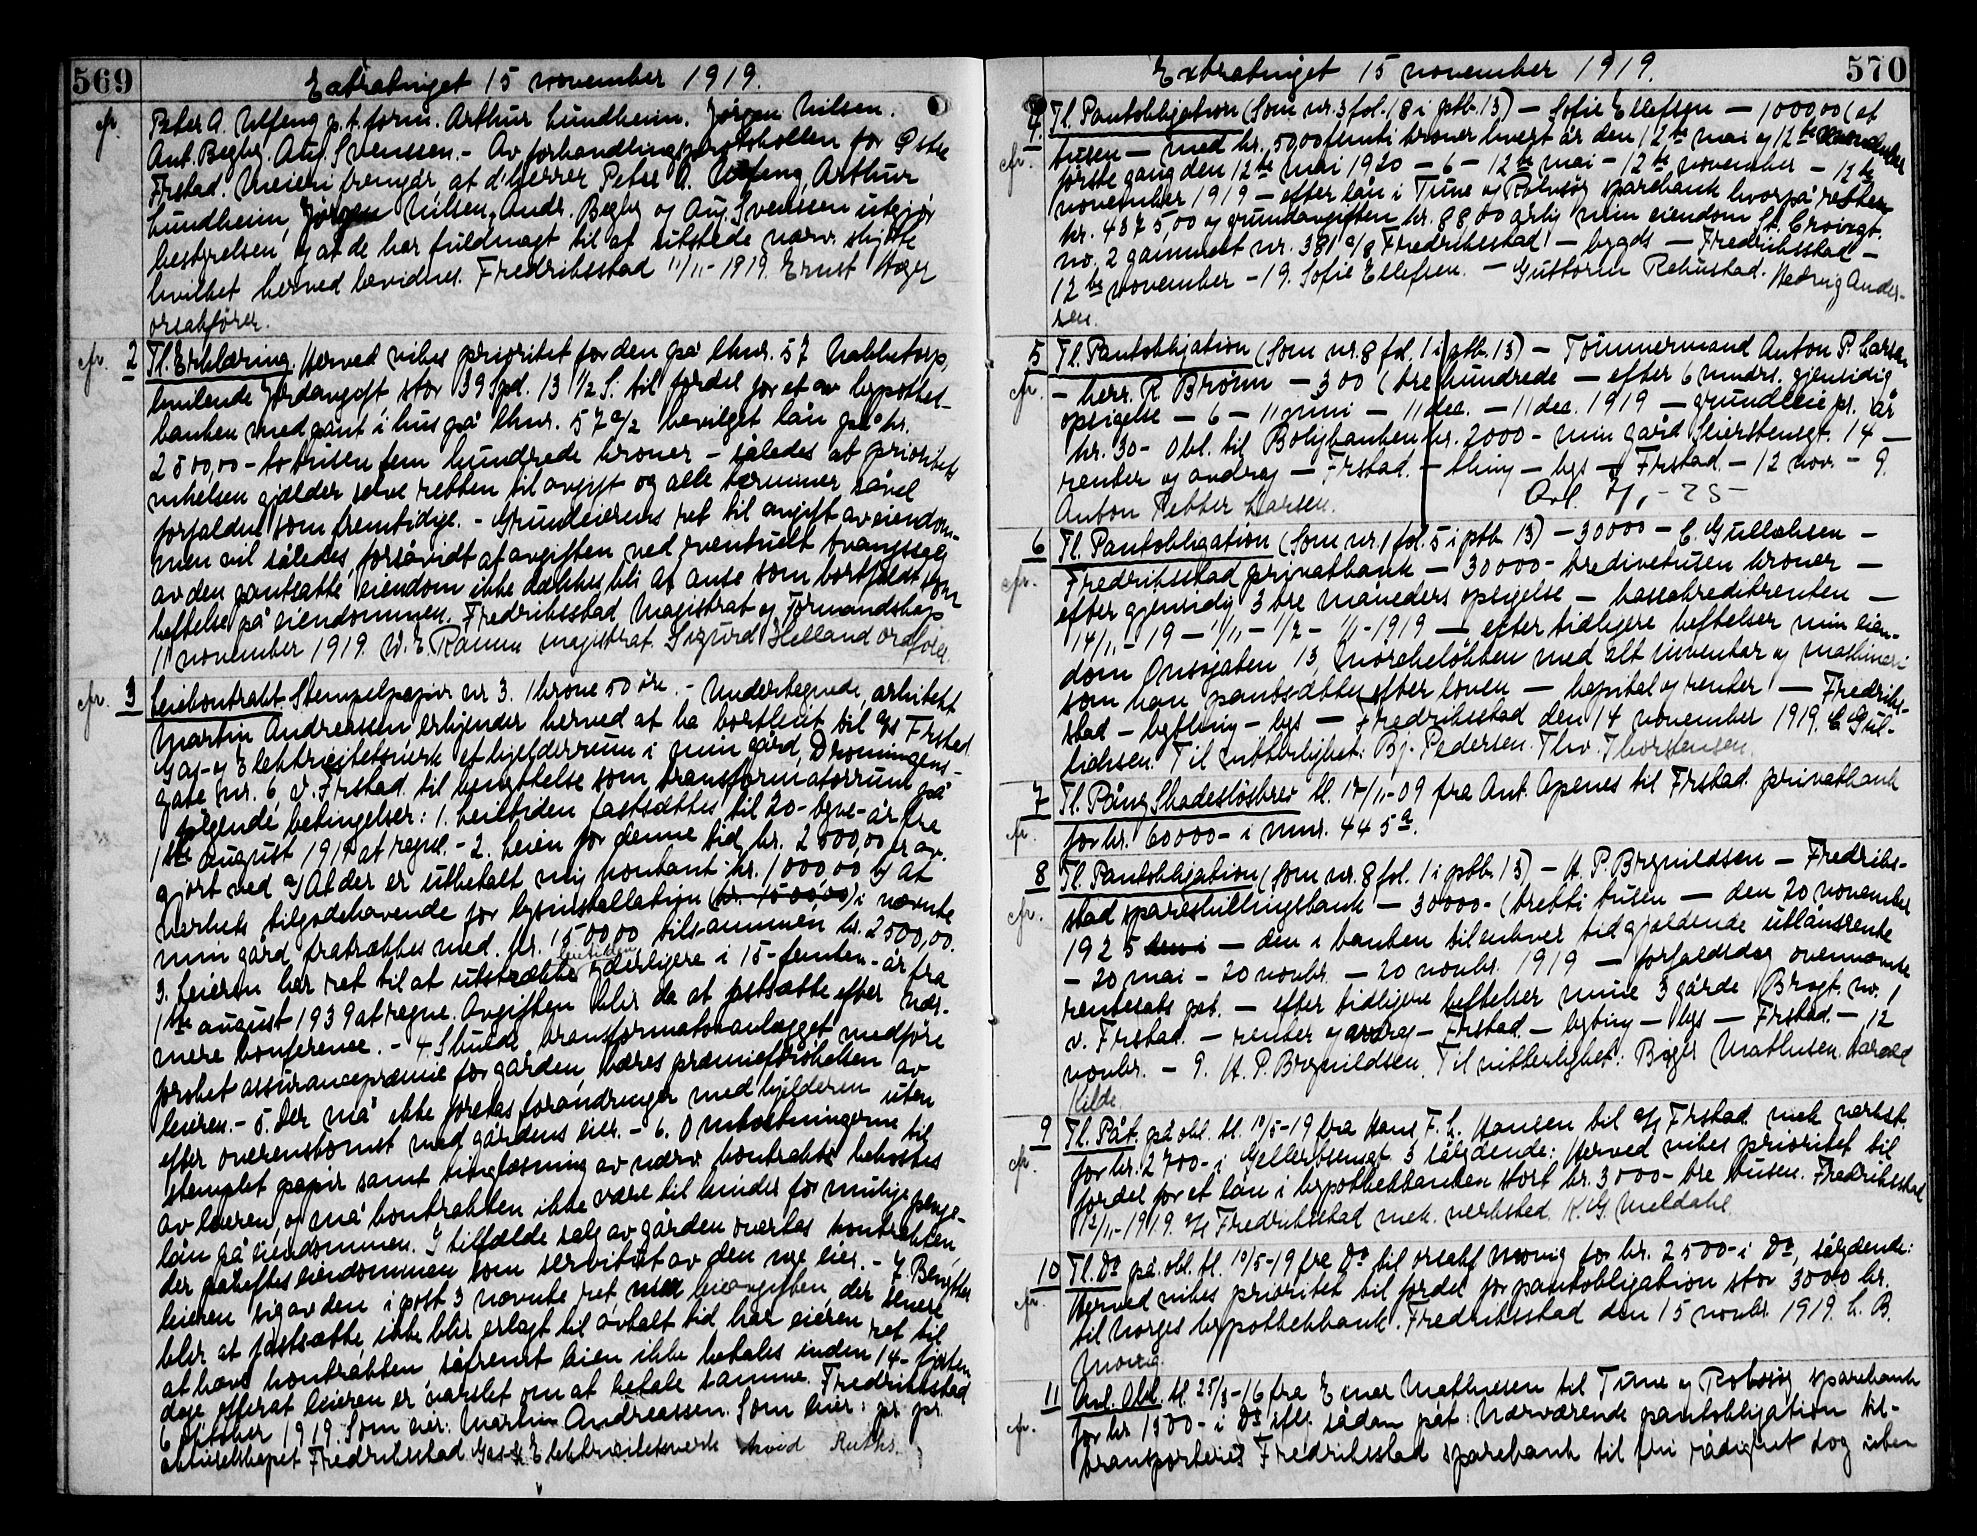 569
Extratinget 15 november 1919.
cfr. Peter A. Ulfeng p.t. form. Arthur Lundheim. Jørgen Nilsen.
Ant. Begby. Aug. Svenssen. - Av forhandlingsprotokollen for Østre
Frstad. Meieri fremgår at d'herrer Peter A. Ulfeng, Arthur
Lundheim, Jørgen Nilsen, Andr. Begby og Aug. Svenssen utgjør
bestyrelsen og at de har fuldmagt til at utstede nærv. skjøte
hvilket herved bevidnes. Fredriksstad 11/11-1919. Ernst Høgen
orsakfører.
cfr. 2 Tl. Erklæring. Herved vikes prioritet for den på lnr. 57 Nabbetorp,
hvilende jordavgift stor 39 Spd. 13 1/2 S. til fordel for et av hypothek-
banken med pant i hus på lnr. 57 a/2 bevilget lån på kr.
2500,00 - totusen fem hundrede kroner - således at prioritets
vikelsen gjælder selve retten til avgift og alle terminer såvel
forfaldne som fremtidige. - Grundeierens ret til avgift av eiendom-
men vil således forsåvidt at avgiften ved eventuelt tvangssalg
av den pantsatte eiendom ikke dækkes bli at anse som bortfaldt som
heftelse på eiendommen. Fredriksstad Magistrat og Formandskap
11 november 1919. W. E. Ramm magistrat. Sigurd Helland ordfører.
cfr. 3 Leiekontrakt. Stempelpapir nr 3. 1 krone 50 øre. - Undertegnede, arkitekt
Martin Andreassen erkjender herved at ha bortleiet til A/s Frstad
Gas- og Elektricitetsverk et kjelderrum i min gård, Dronningens-
gate nr. 6 v. Frstad. til benyttelse som transformatorrum på
følgende betingelser: 1. Leietiden fastsættes til 20-tyve-år fra
1ste august 1919 at regne. - 2. Leien for denne tid kr. 2500,00 er av-
gjort ved a) At der er utbetalt mig kontant kr. 1000,00 b) At
verkets tilgodehavende for lysinstallation (kr. 1500,00) i nævnte
min gård fratrækkes med. kr. 1500,00 tilsammen kr. 2500,00.
3. Leieren har ret til at utstrække leietiden yderligere i 15-femten-år fra
1ste august 1939 at regne. Avgiften blir da at fastsætte efter nær-
mere konference. - 4. Skulde transformatoranlægget medføre
forhøiet assurancepræmie for gården, bæres præmieforhøielsen av
leieren. - 5. Der må ikke foretas forandringer med kjelderen uten
efter overenskomst med gårdens eier. - 6. Omkostningerne til
stemplet papir samt tinglæsning av nærv. kontrakt bekostes
av leieren, og må kontrakten ikke være til hinder for mulige penge-
lån på eiendommen. I tilfælde salg av gården overtas kontrakten,
der påheftes eiendommen som servitut av den nye eier. - 7. Benytter
leieren sig av den i post 3 nævnte ret men leieavgiften, der senere
blir at fastsætte, ikke blir erlagt til avtalt tid har eieren ret til
at hæve kontrakten såfremt leien ikke betales inden 14-fjorten
dage efterat leieren er varslet om at betale samme. Fredriksstad
6 oktober 1919. Som eier: Martin Andreassen. Som leier: pr. pr.
aktieselskapet Fredriksstad Gas- & Elektricitetsverk Arvid Ruths.
570
Extratinget 15 november 1919.
4. Tl. Pantobligation (Som nr. 3 fol. 18 i ptb. 13) - Sofie Ellefsen - 1000,00 (et
cfr. tusen - med kr. 50,00 femti kroner hvert år den 12te mai og 12te november
første gang den 12te mai 1920 - 6 - 12te mai - 12te november - 12te
november 1919 - efter lån i Tune og Rolvsøy sparebank hvorpå rester
kr. 4375,00 og grundavgiften kr. 88,00 årlig min eiendom St. Croixgt.
no. 2 gammelt nr. 381 a/8 Fredriksstad - bygds - Fredriksstad -
12te november - 19. Sofie Ellefsen. - Guttorm Rehustad. Hedvig Ander-
sen.
5 Tl. Pantobligation (Som nr. 8 fol. 1 i ptb. 13) - Tømmermand Anton P. Larsen
cfr. - herr. R. Brønn - 300 (tre hundrede - efter 6 mndrs. gjensidig
opsigelse - 6 - 11 juni - 11 dec. - 11 dec. 1919 - grundleie pr. år
kr. 30 - Obl. til Boligbanken kr. 2000 - min gård Seierstensgt. 14 -
renter og andreg - Frstad. - thing - lgs - Frstad. - 12 nov. - 9.
Anton Petter Larsen. Avl. 7/1 - 25 -
6 Tl. Pantobligation (Som nr 1 fol. 5 i ptb 13) - 30000 - C. Gullichsen -
cfr. Fredriksstad privatbank - 30000 - tredivetusen kroner -
efter gjensidig 3 tre måneders opsigelse - kassakreditrenten -
14/11 - 19 - 1/11 - 1/2 - 1/1 - 1919 - efter tidligere heftelser min eien-
dom Onsøgaten 13, Mørcheløkken med alt inventar og maskineri
som kan pantsættes efter loven - kapital og renter - Fredriks-
stad - bything - lgs - Fredriksstad den 14 november 1919. C. Gul-
lichsen. Til vitterlighet: Bj. Pedersen. Thv. Thorstensen.
7 Tl. Påteg. Skadesløsbrev tl. 17/11-09 fra Ant. Apenes til Frstad. privatbank
cfr. for kr. 60000 - i mnr. 445 a.
8 Tl. Pantobligation (Som nr. 8 fol. 1 i ptb. 13) - H. P. Brynildsen - Fredriks-
cfr. stad spareskillingsbank - 30000 - (tretti tusen - den 20 november
1925 den i - den i banken til enhver tid gjældende utlånsrente
- 20 mai - 20 novbr. - 20 novbr. 1919 - forfaldsdag ovennævnte
rentesats pct. - efter tidligere heftelser mine 3 gårde Brogt. no. 1
v. Frstad. - renter og andreg - Frstad. - byting - lgs - Frstad. - 12
novbr. - 9. H. P. Brynildsen. Til vitterlighet: Birger Mathisen. Harald
Kilde.
9 Tl. Påt. på obl. tl. 10/5-19 fra Hans F. L. Hansen til A/s Frstad mek verkst.
cfr. for kr. 2700 - i Gellertsensgt. 3 sålydende: Herved vikes prioritet til
fordel for et lån i hypothekbanken stort kr. 3000 - tre tusen. Fredriksstad
12/11-1919. A/s Fredriksstad mek. verksted. K. G. Meldahl.
10 Tl. Do på obl. tl. 10/5-19 fra Do til orsakf. Movig for kr. 2500 - i Do, sålydende:
cfr. Herved vikes prioritet til fordel for pantobligation stor 3000 kr.
til Norges hypothekbank. Fredriksstad den 15 novbr 1919. L. B.
Movig.
11 Avl. Obl. tl. 25/3-16 fra Einar Mathiesen til Tune og Rolvsøy sparebank
cfr. for kr 1500 - i Do iflg. sådan påt: Nærværende pantobligation til-
transporteres Fredriksstad sparebank til fri rådighet dog uten